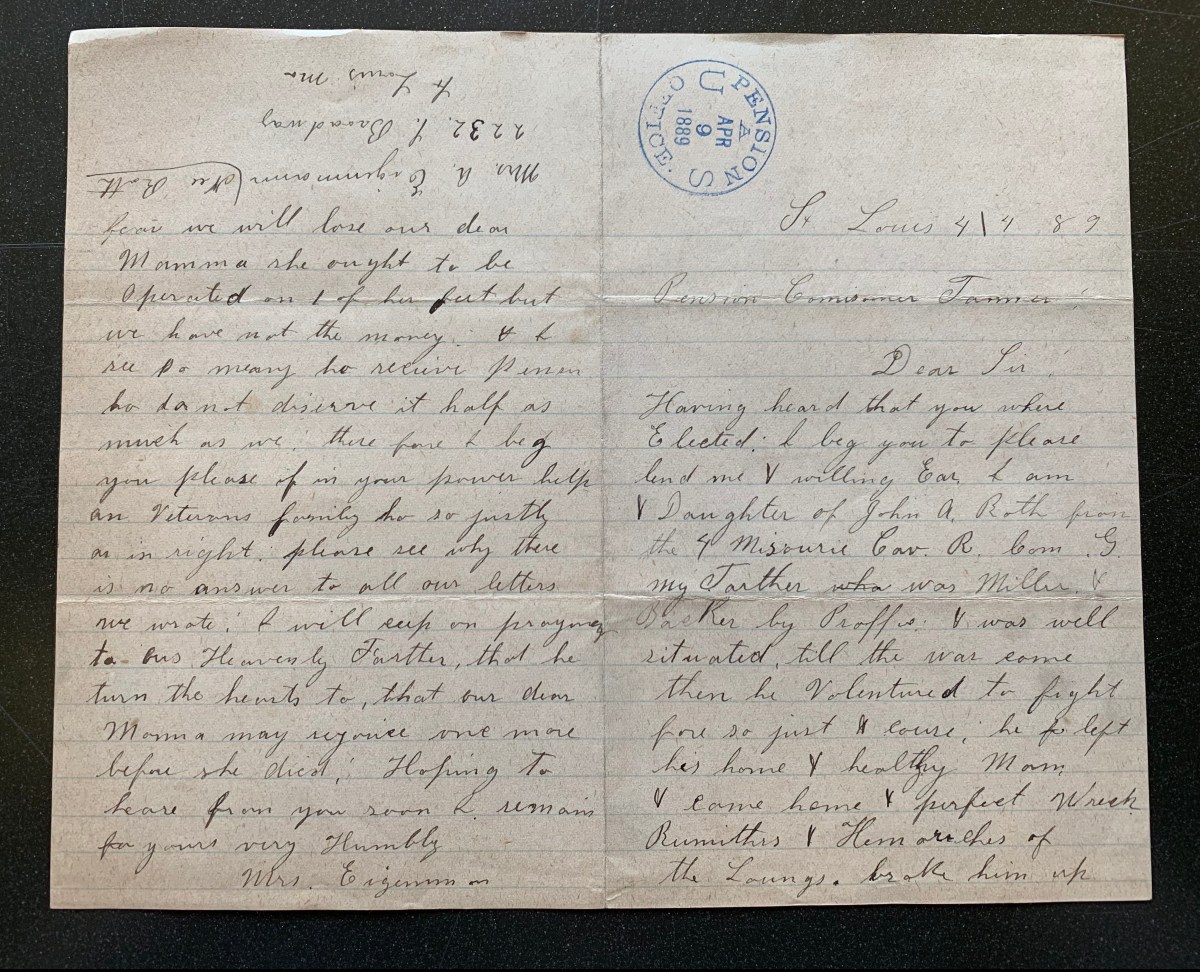 U.S. PENSION OFFICE.
A
APR
9
1889
St Louis 4\4 89
Pension Comisoner Tanner!
Dear Sir!
Having heard that you where
Elected: I beg you to please
lend me & willing Ear, I am
& Daughter of John A. Roth from
the 4 Misourie Cav. R. Com. G.
my Farther who was Miller &
Backer by Proffis: & was well
situated, till the war came
then he Volentured to fight
fore so just & couse, he left
his home & healthy Mann
& came home & perfect Wreck
Rumithis & Hemoriches of
the Loungs. broke him up
fear we will lose our dear
Mamma she ought to be
Operated on 1 of her feet but
we have not the money. & I
see so meany ho recieve Pensin
ho do not diserve it half as
much as we! there fore I beg
you please if in your power help
an Veterans family ho so justly
as in right. please see why there
is no answer to all our letters
we wrote! I will eep on praying
to our Heavenly Farther, that he
turn the hearts to, that our dear
Momma may rejoice one more
before she dies! Hoping to
heare from you soon I remain
yours very Humbly
Mrs. Eigenmman
Mrs. A. Eigenmann (Nee Roth
2232 S. Broadway
St Louis Mo